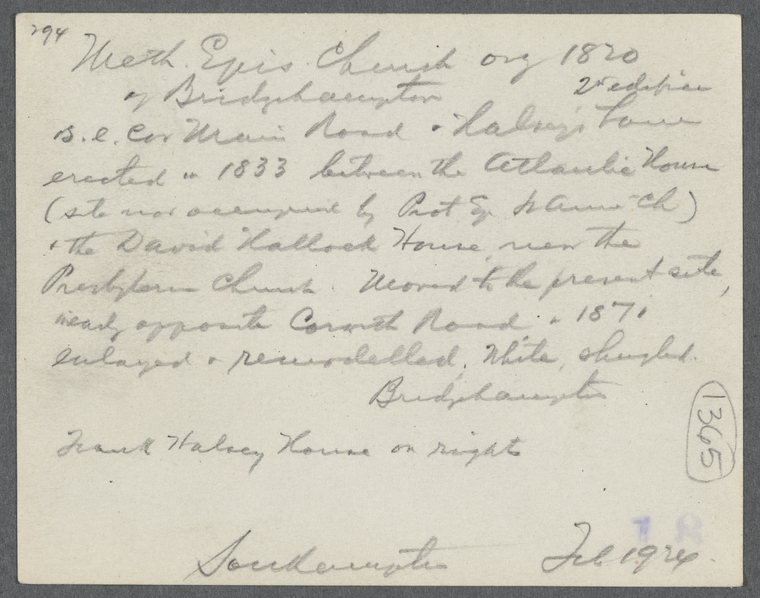 294
Meth. Epis. Church org 1820
of Bridgehampton 2nd edifice
s.e. Cor Main Road & Halsey's Lane
erected in 1833 between the Atlantic House
(site now occupied by Prot Ep St Ann's Ch)
& the David Hallock House, near the
Presbyterian Church. Moved to the present site,
nearly opposite Corwith Road in 1871
enlarged & remodelled. White, shingled.
Bridgehampton
Frank Halsey House on right
1365
18
Southampton Feb 1924.